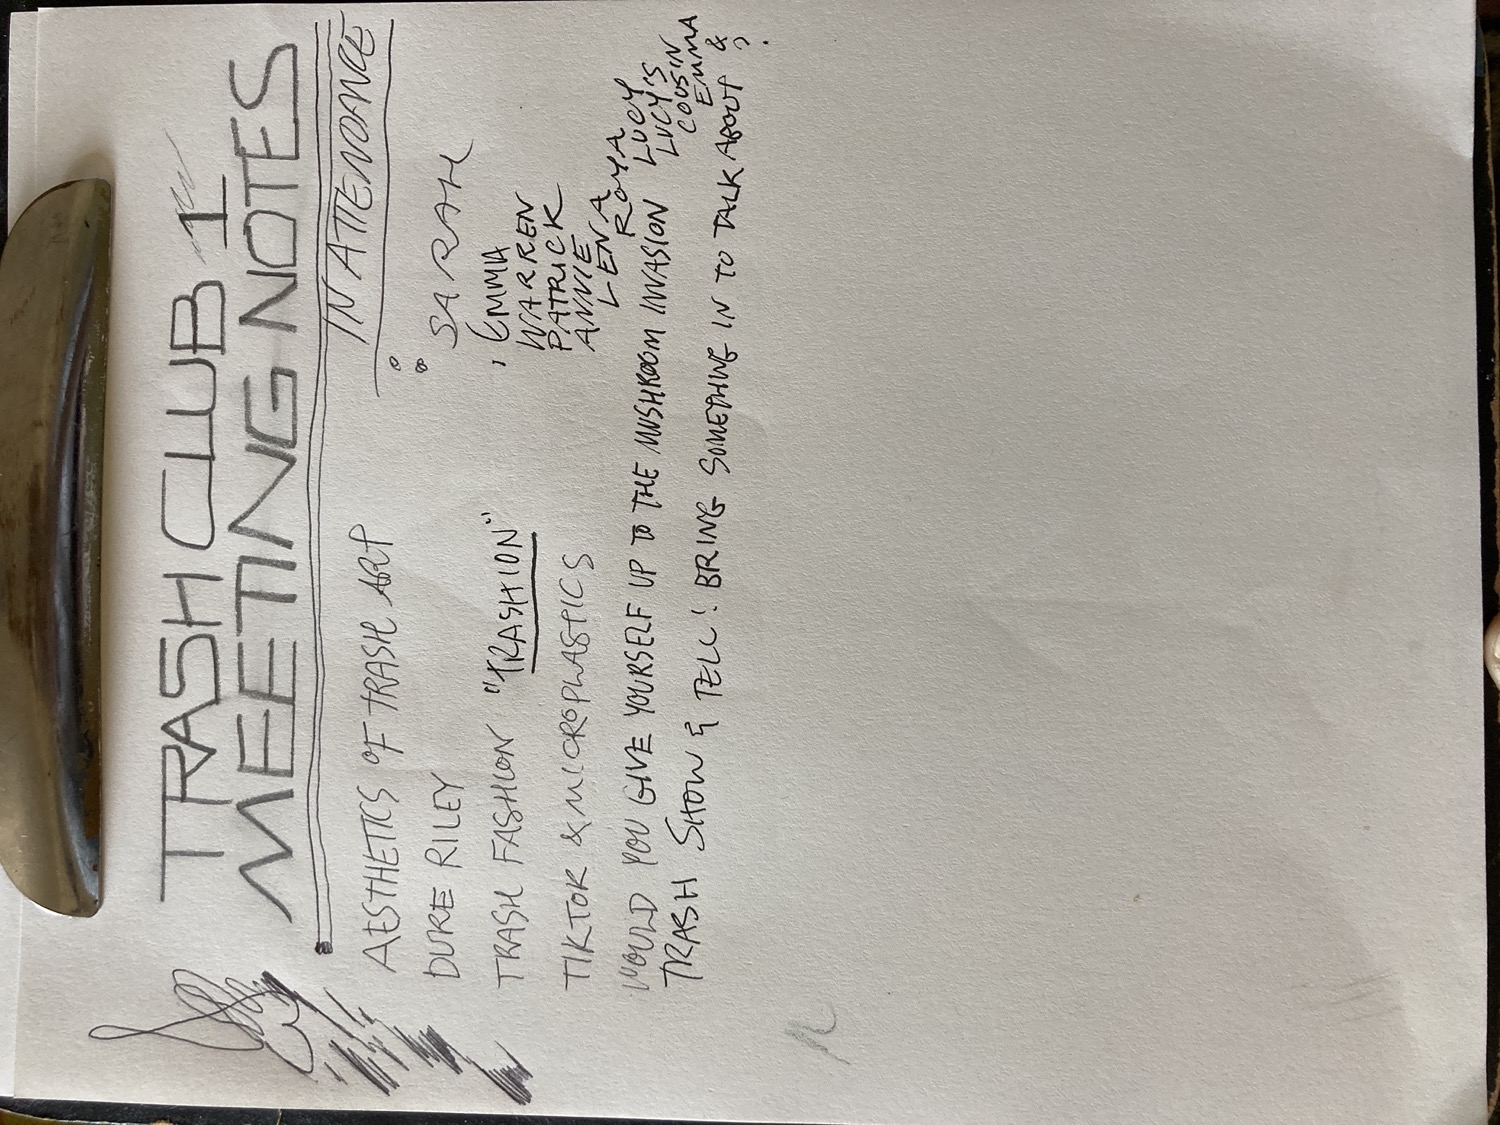 TRASH CLUB 1
MEETING NOTES
IN ATTENDANCE
AESTHETICS OF TRASH ART
DUKE RILEY
TRASH FASHION "TRASHION"
TIKTOK & MICROPLASTICS
WOULD YOU GIVE YOURSELF UP TO THE MUSHROOM INVASION
TRASH SHOW & TELL! BRING SOMETHING IN TO TALK ABOUT
SARAH
EMMA
WARREN
PATRICK
ANNIE
LENA
ROYA
LUCY
LUCY'S
COUSIN
EMMA
&
?